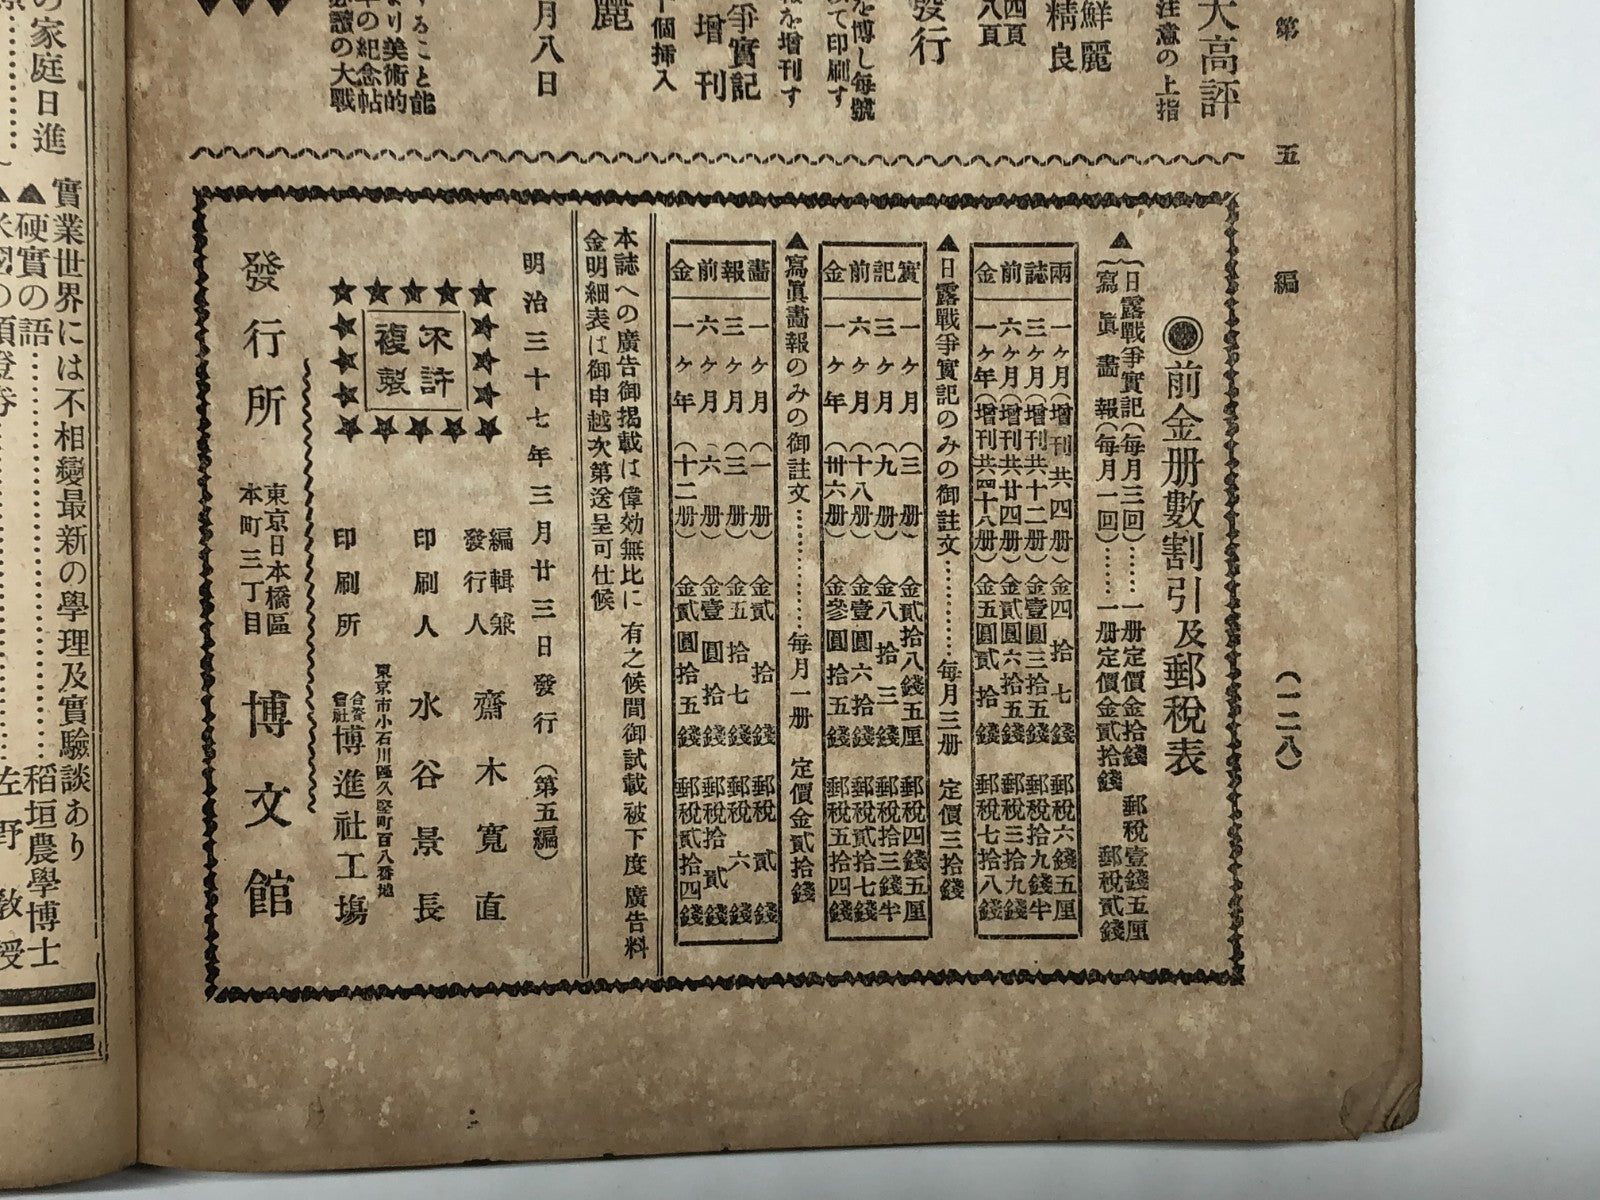 第五編
(一二八)
大高評
注意の上指
鮮麗
精良
四頁
八頁
發行
を博し每號
て印刷す
を增刊す
爭實記
增刊
個挿入
麗
月八日
ること能
より美術的
年の紀念帖
必讀の大戰
◉前金册數割引及郵稅表
▲日露戰爭實記(每月三回)……一册定價金拾錢 郵稅壹錢五厘
寫眞畵報(每月一回)……一册定價金貳拾錢 郵稅貳錢
兩誌前金
一ヶ月(增刊共四册)金四拾七錢 郵稅六錢五厘
三ヶ月(增刊共十二册)金壹圓三拾五錢 郵稅拾九錢半
六ヶ月(增刊共廿四册)金貳圓六拾五錢 郵稅三拾九錢
一ヶ年(增刊共四十八册)金五圓貳拾錢 郵稅七拾八錢
▲日露戰爭實記のみの御註文…………每月三册 定價三拾錢
實記前金
一ヶ月(三册)金貳拾八錢五厘 郵稅四錢五厘
三ヶ月(九册)金八拾三錢 郵稅拾三錢半
六ヶ月(十八册)金壹圓六拾五錢 郵稅貳拾七錢
一ヶ年(卅六册)金參圓拾五錢 郵稅五拾四錢
▲寫眞畵報のみの御註文…………每月一册 定價金貳拾錢
畵報前金
一ヶ月(一册)金貳拾錢 郵稅貳錢
三ヶ月(三册)金五拾七錢 郵稅六錢
六ヶ月(六册)金壹圓拾錢 郵稅拾貳錢
一ヶ年(十二册)金貳圓拾五錢 郵稅貳拾四錢
本誌への廣告御揭載は偉効無比に有之候間御試載被下度廣告料
金明細表は御申越次第送呈可仕候
明治三十七年三月廿三日發行(第五編)
不許
複製
編輯兼
發行人 齋木寬直
印刷人 水谷景長
東京市小石川區久堅町百八番地
印刷所 合資會社博進社工塲
發行所 東京日本橋區
本町三丁目 博文館
實業世界には不相變最新の學理及實驗談あり
▲硬實の語………………稻垣農學博士
佐野敎授
の家庭日進